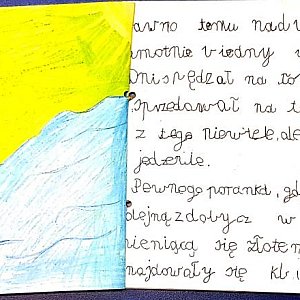 awno temu nad
amotnie biedny
Dni spędzał na
sprzedawał na t
z tego niewiele, ale
jedzenie.
Pewnego poranka, gd
dejną zdobycz w
ieniącą się złotem
najdowały się